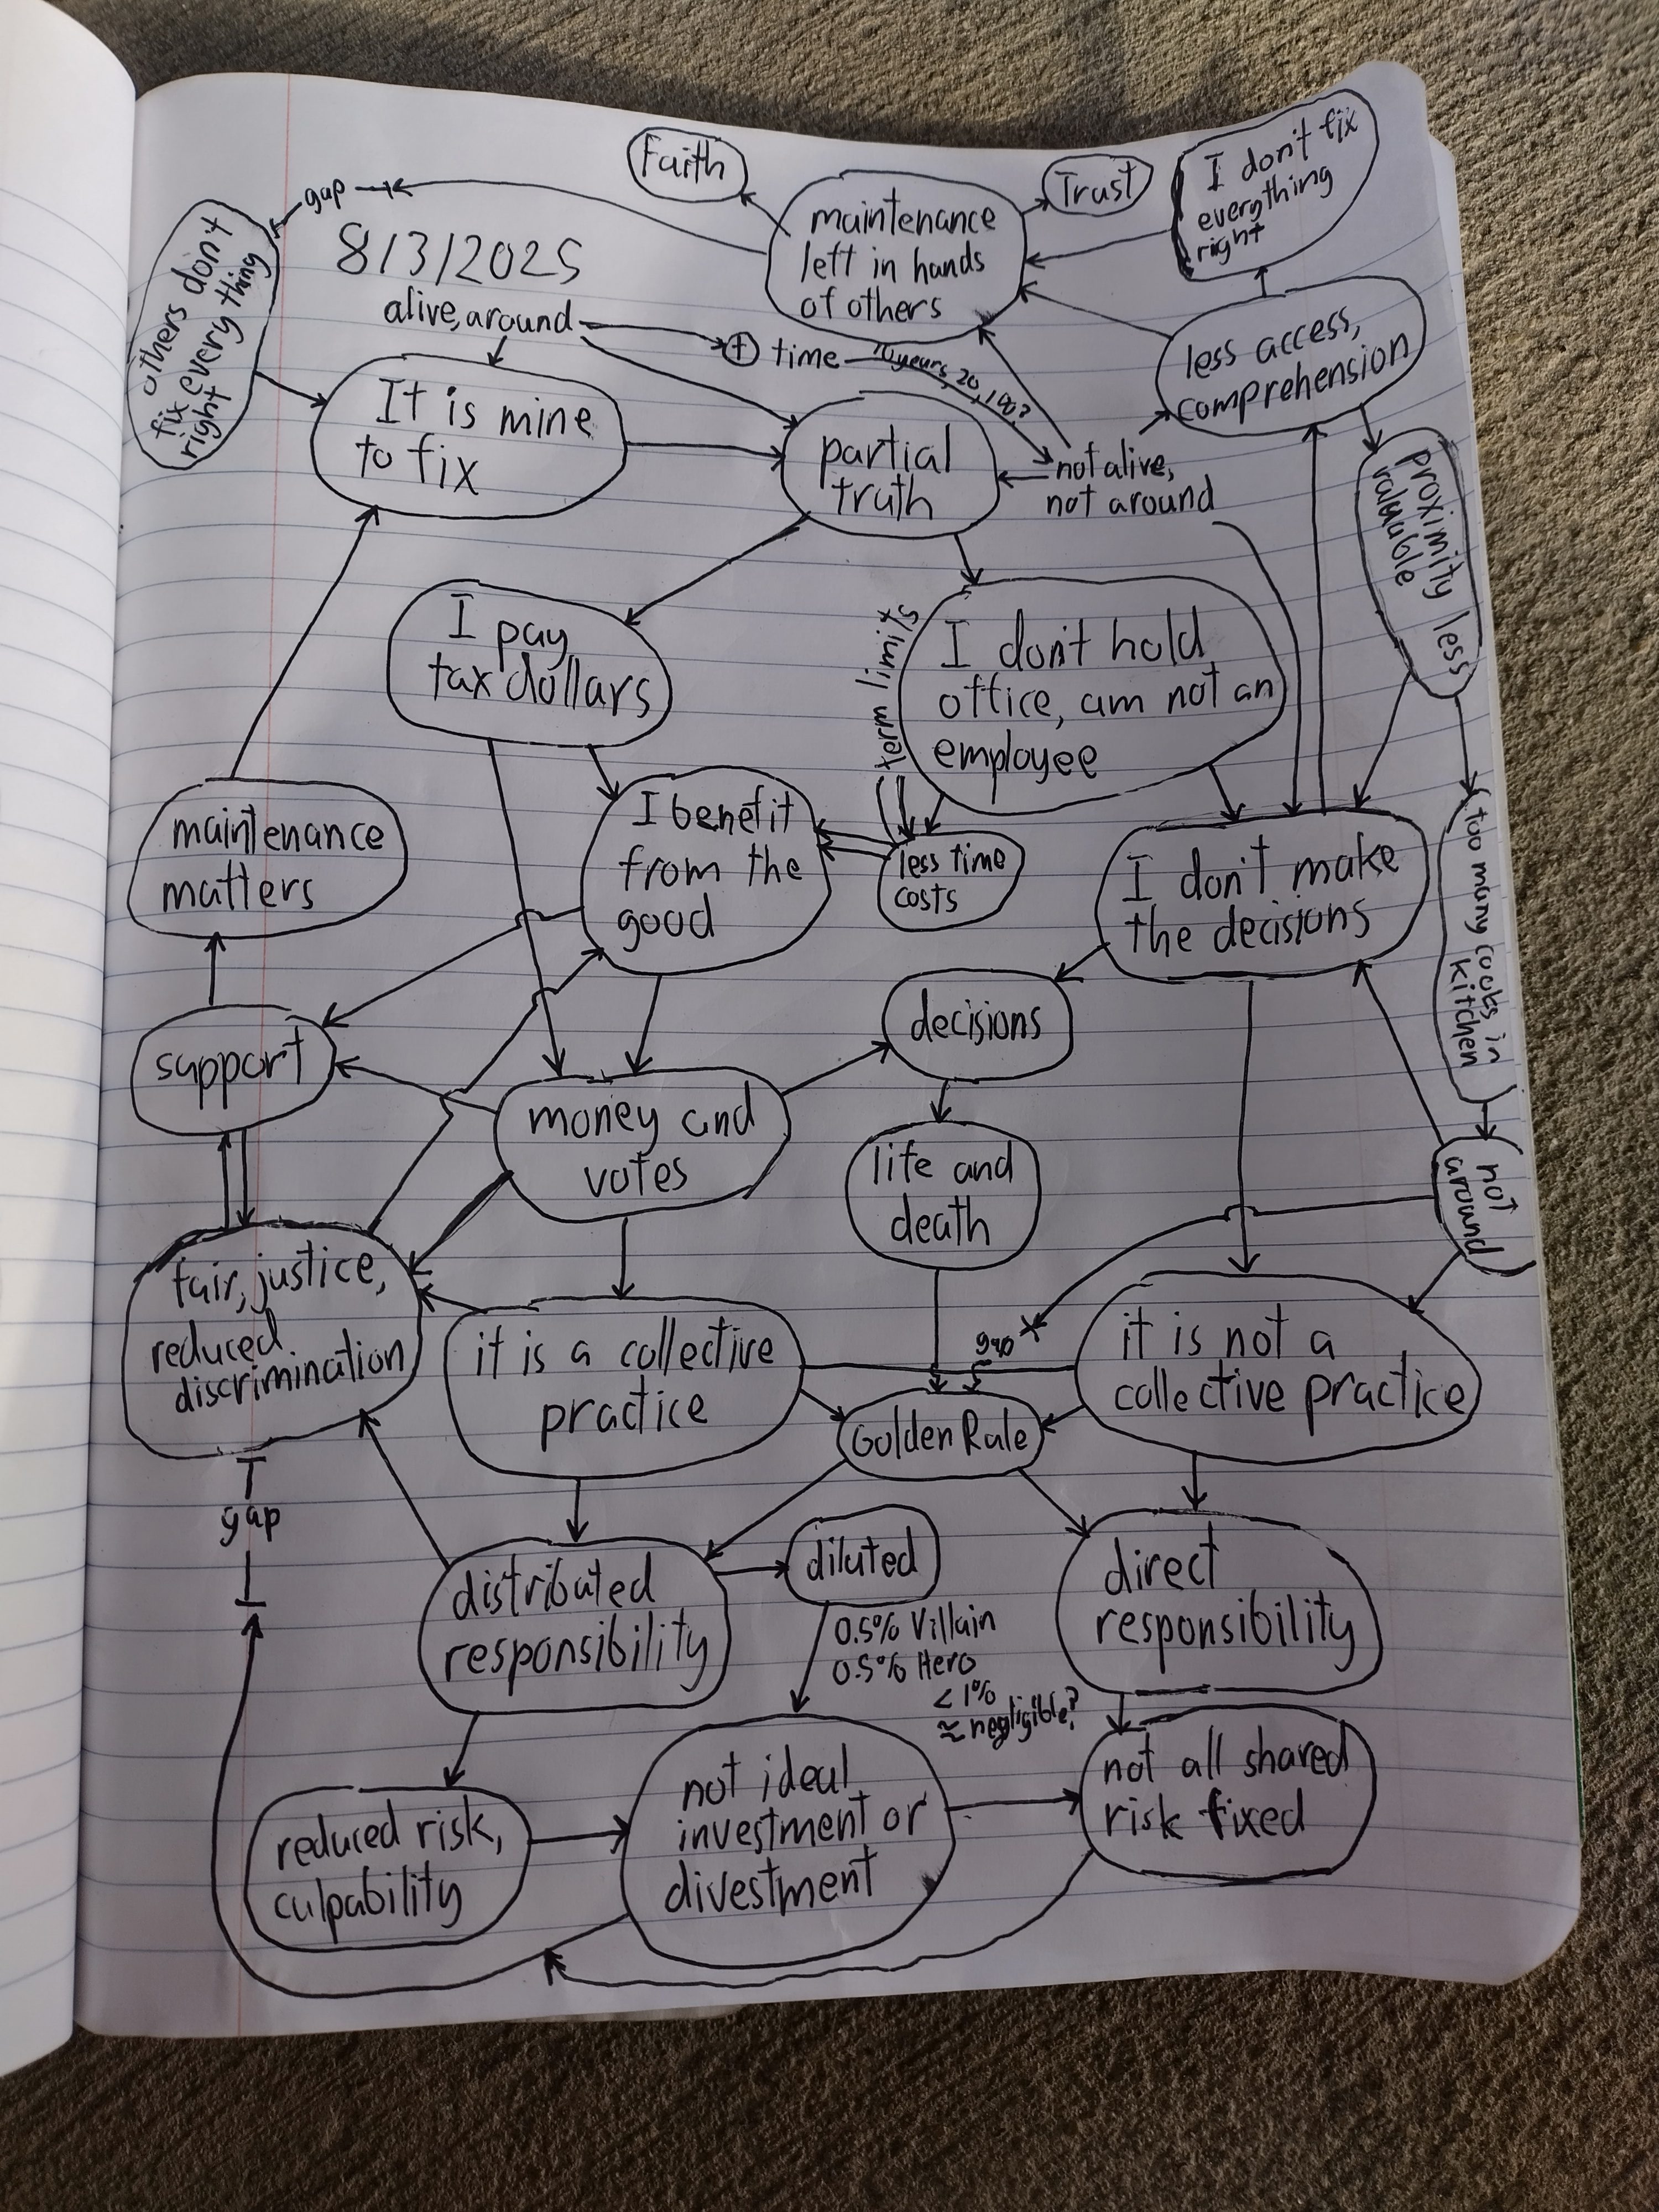 Faith
Trust
I don't fix
everything
right
gap
maintenance
left in hands
of others
8/3/2025
others don't
fix everything
right
alive, around
+ time
10 years, 20, 100?
less access,
comprehension
It is mine
to fix
partial
truth
not alive,
not around
proximity less
valuable
I pay
tax dollars
term limits
I don't hold
office, am not an
employee
maintenance
matters
I benefit
from the
good
less time
costs
I don't make
the decisions
too many cooks in
kitchen
support
decisions
money and
votes
life and
death
not
around
fair, justice,
reduced
discrimination
it is a collective
practice
gap
it is not a
collective practice
Golden Rule
gap
distributed
responsibility
diluted
0.5% Villain
0.5% Hero
< 1%
≈ negligible?
direct
responsibility
reduced risk,
culpability
not ideal
investment or
divestment
not all shared
risk fixed